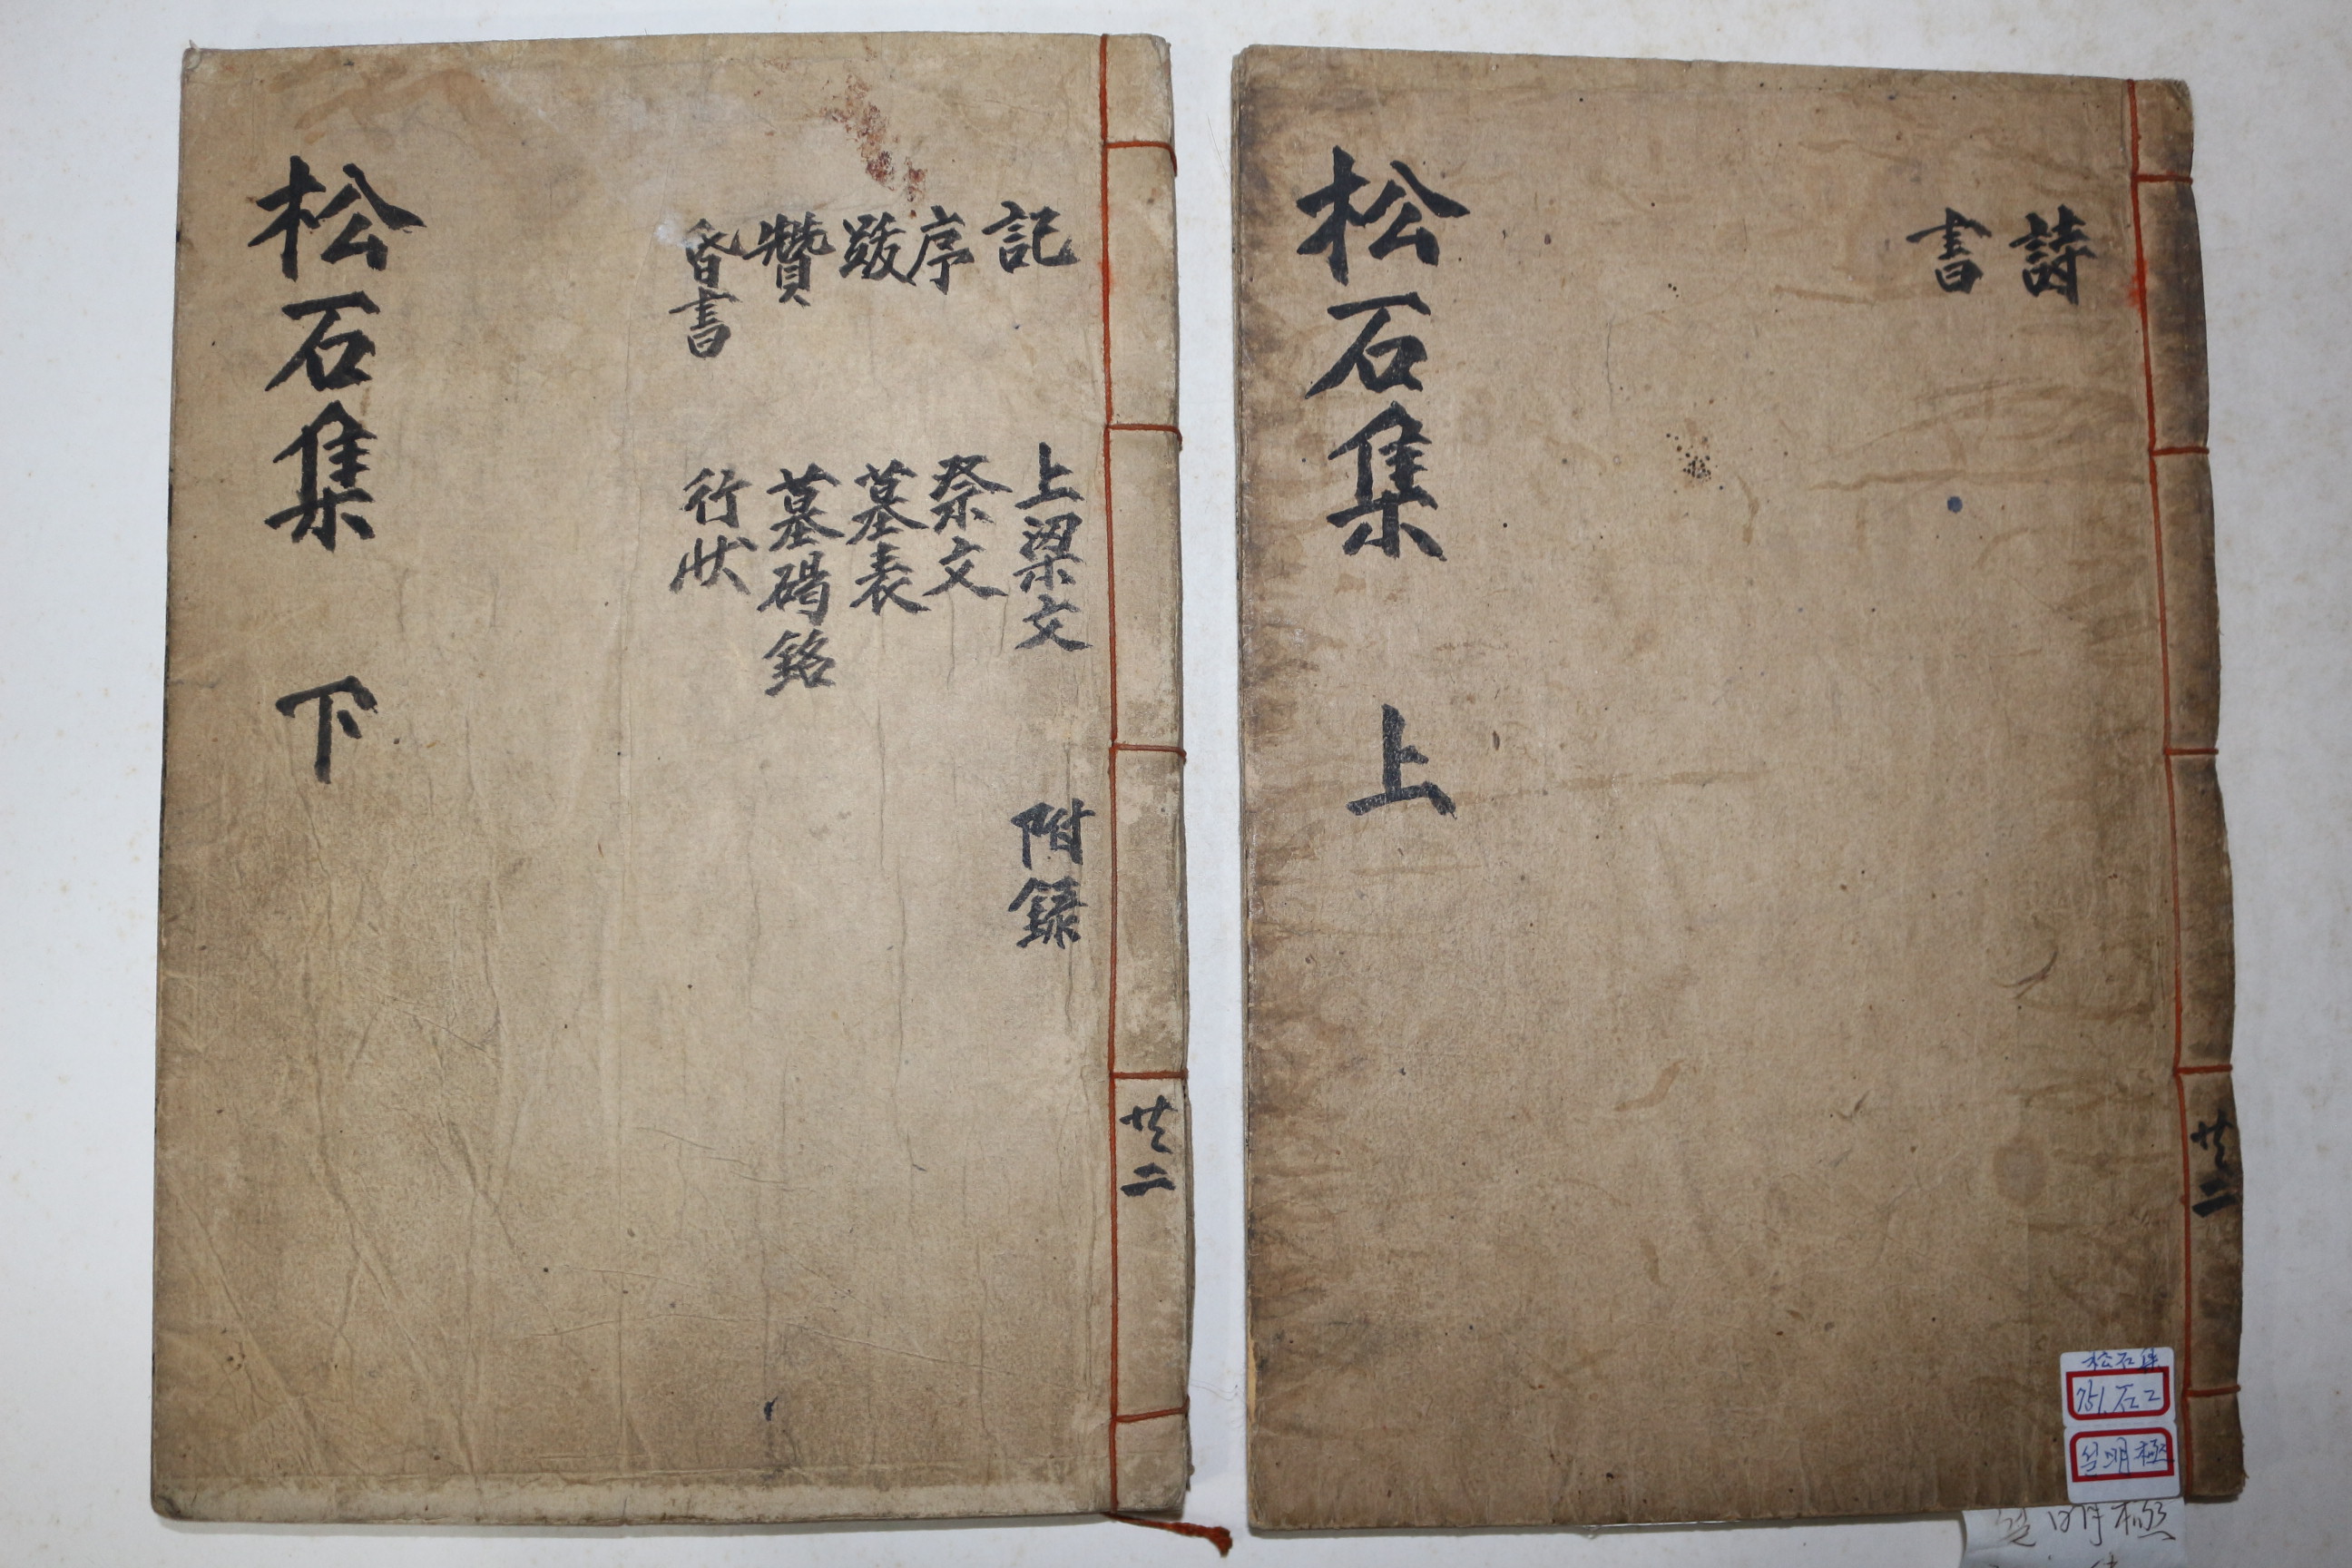 松石集 上
詩
書
廿二
松石集
751.石2
松石集 下
記
序
跋
贊
昏書
上梁文
祭文
墓表
墓碣銘
行狀
附錄
廿二